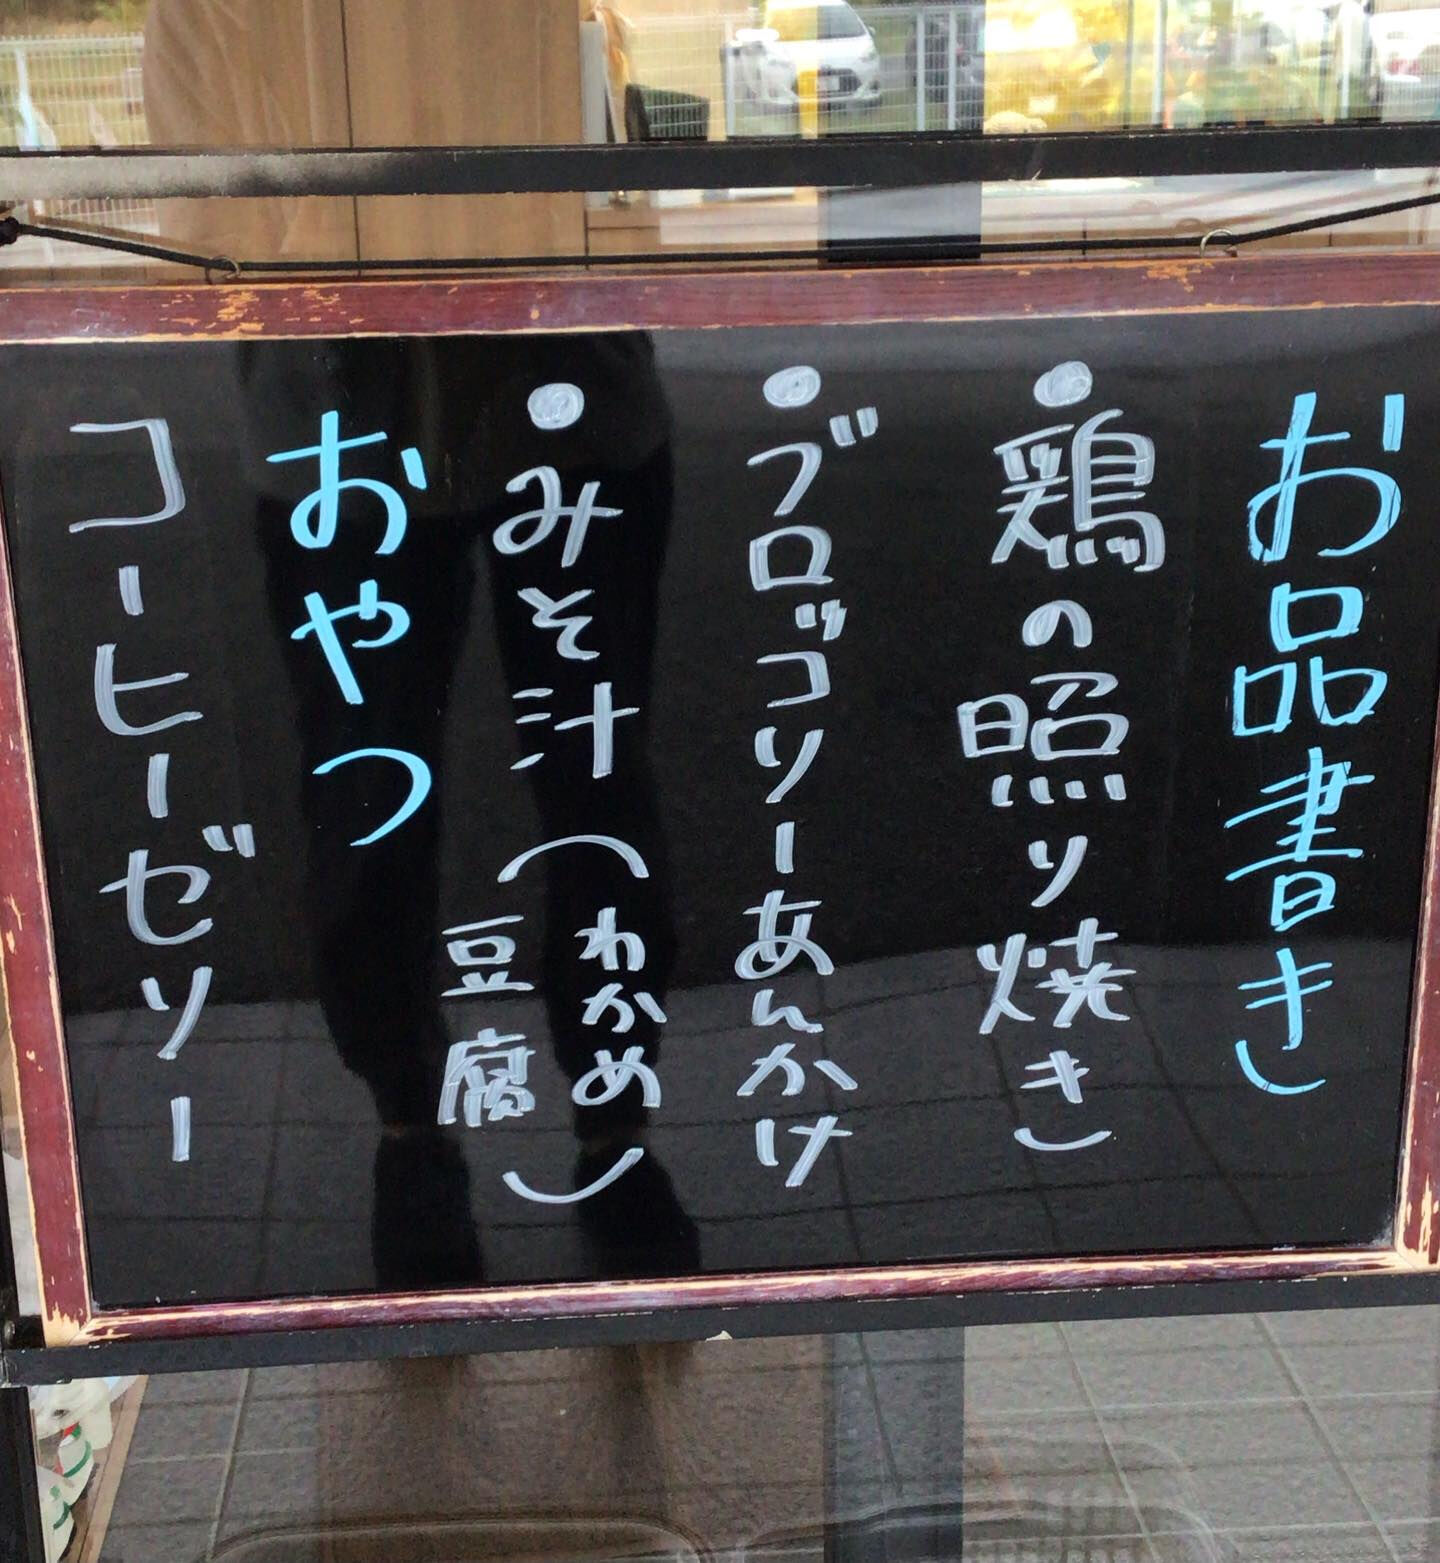 お品書き
●鶏の照り焼き
●ブロッコリーあんかけ
●みそ汁(わかめ
豆腐)
おやつ
コーヒーゼリー